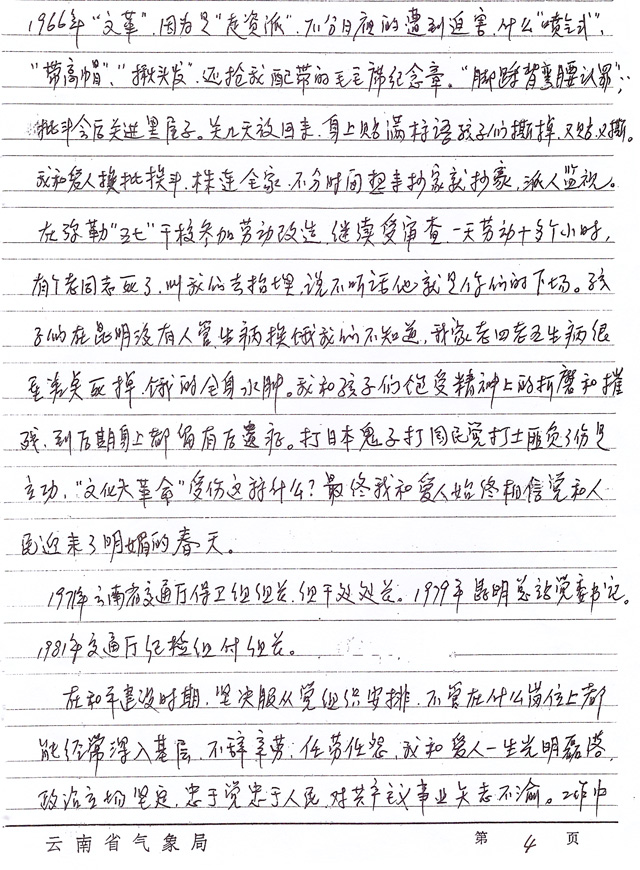 1966年“文革”，因为是“走资派”，不分日夜的遭到迫害，什么“喷气式”、
“带高帽”、“揪头发”，还抢我配带的毛主席纪念章。“脚踩背弯腰认罪”；
批斗会后关进黑屋子。关几天放回来，身上贴满标语孩子们撕掉，又贴又撕。
我和爱人挨批挨斗，株连全家，不分时间想来抄家就抄家，派人监视。
在弥勒“五七”干校参加劳动改造，继续受审查，一天劳动十多个小时，
有个老同志死了，叫我们去抬埋，说不听话他就是你们的下场。孩
子们在昆明没有人管，生病挨饿我们不知道，我家老四老五生病很
重差点死掉，饿的全身水肿。我和孩子们饱受精神上的折磨和摧
残，到后期身上都留有后遗症。打日本鬼子打国民党打土匪负了伤是
立功，“文化大革命”受伤这算什么？最终我和爱人始终相信党和人
民迎来了明媚的春天。
1971年云南省交通厅保卫组组长、组干处处长。1979年昆明总站党委书记。
1981年交通厅纪检组付组长。
在和平建设时期，坚决服从党组织安排，不管在什么岗位上都
能经常深入基层，不辞辛劳，任劳任怨，我和爱人一生光明磊落，
政治立场坚定，忠于党忠于人民，对共产主义事业矢志不渝。工作中
云南省气象局 第 4 页